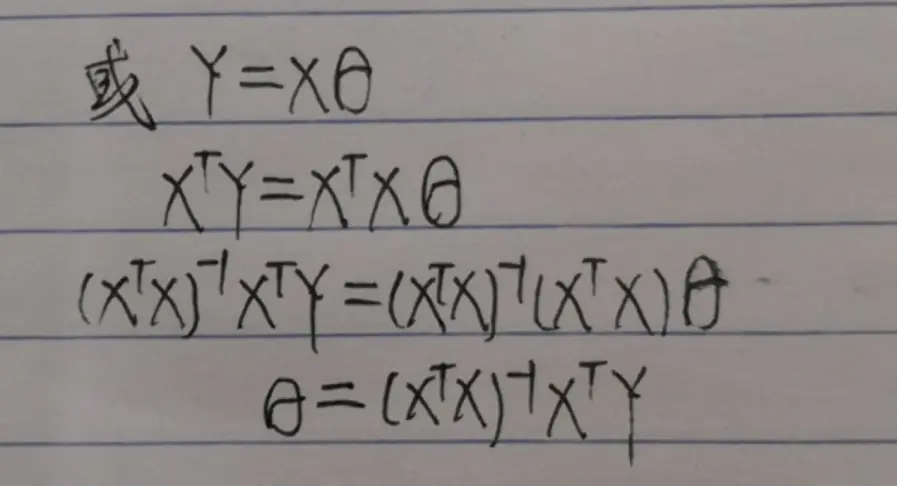 或 Y=Xθ
XᵀY=XᵀXθ
(XᵀX)⁻¹XᵀY=(XᵀX)⁻¹(XᵀX)θ
θ=(XᵀX)⁻¹XᵀY